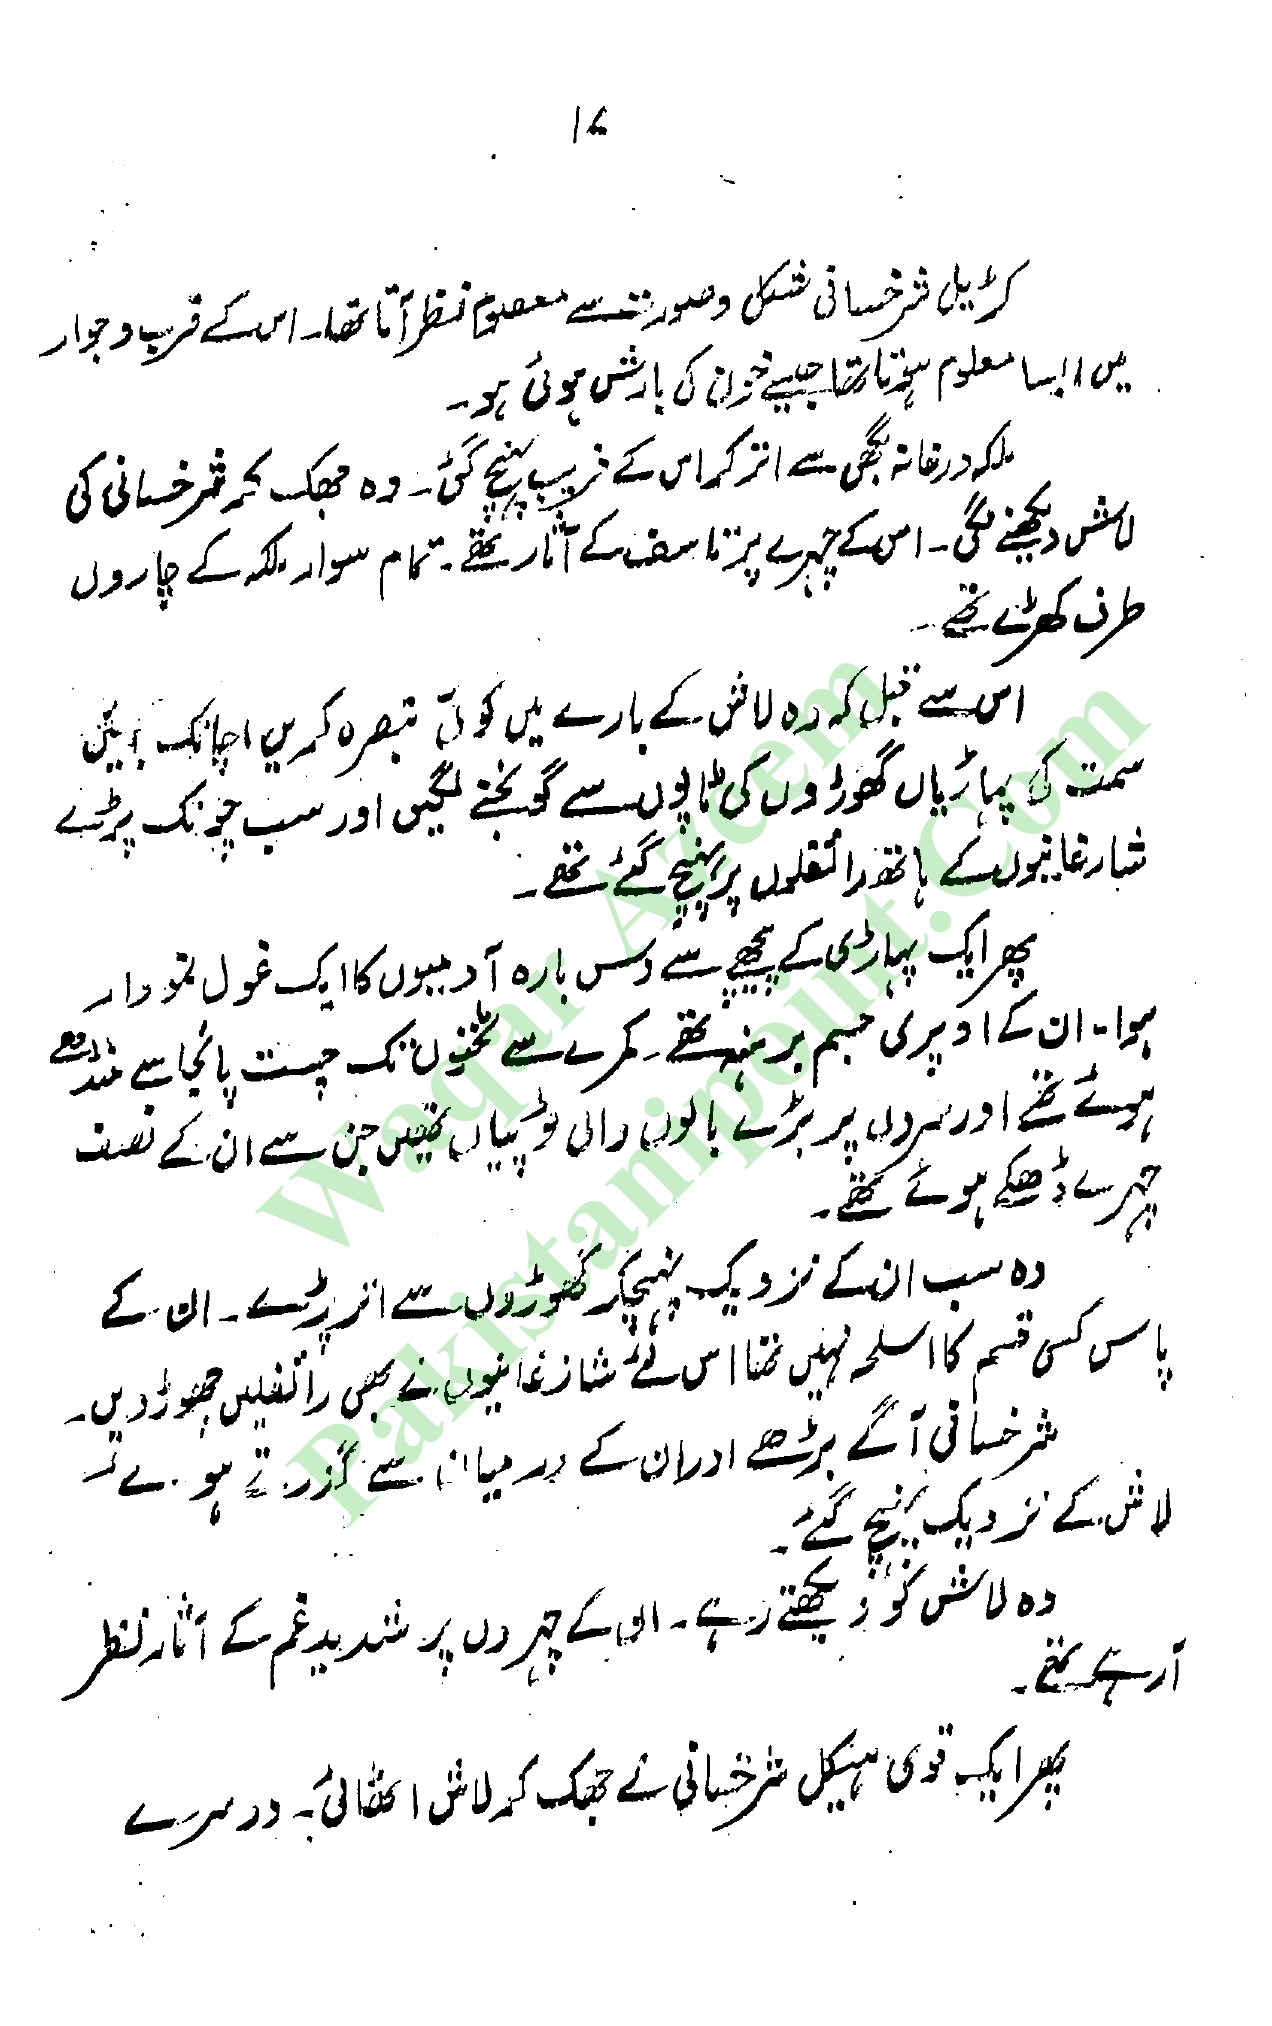 ۱۷
کڑیل شرخسانی شکل و صورت سے معصوم نظر آتا تھا۔ اس کے قرب و جوار
میں ایسا معلوم ہوتا تھا جیسے خون کی بارش ہوئی ہو۔
ملکہ درغانہ بگھی سے اتر کر اس کے قریب پہنچ گئی۔ وہ جھک کر شرخسانی کی
لاش دیکھنے لگی۔ اس کے چہرے پر تاسف کے آثار تھے۔ تمام سوار ملکہ کے چاروں
طرف کھڑے تھے۔
اس سے قبل کہ وہ لاش کے بارے میں کوئی تبصرہ کریں اچانک بائیں
سمت کی پہاڑیاں گھوڑوں کی ٹاپوں سے گونجنے لگیں اور سب چونک پڑے
شارغانیوں کے ہاتھ رائفلوں پر پہنچ گئے تھے۔
پھر ایک پہاڑی کے پیچھے سے دس بارہ آدمیوں کا ایک غول نمودار
ہوا۔ ان کے اوپری جسم برہنہ تھے۔ کمر سے ٹخنوں تک چست پائجامے منڈھے
ہوئے تھے اور سروں پر بڑے بالوں والی ٹوپیاں تھیں جن سے ان کے نصف
چہرے ڈھکے ہوئے تھے۔
وہ سب ان کے نزدیک پہنچکر گھوڑوں سے اتر پڑے۔ ان کے
پاس کسی قسم کا اسلحہ نہیں تھا اس لئے شازغانیوں نے بھی رائفلیں چھوڑ دیں۔
شرخسانی آگے بڑھے اور ان کے درمیان سے گزرتے ہوئے
لاش کے نزدیک پہنچ گئے۔
وہ لاش کو دیکھتے رہے۔ ان کے چہروں پر شدید غم کے آثار نظر
آرہے تھے۔
پھر ایک قوی ہیکل شرخسانی نے جھک کر لاش اٹھائی۔ دوسرے
Waqar Azeem
Pakistanipoint.Com